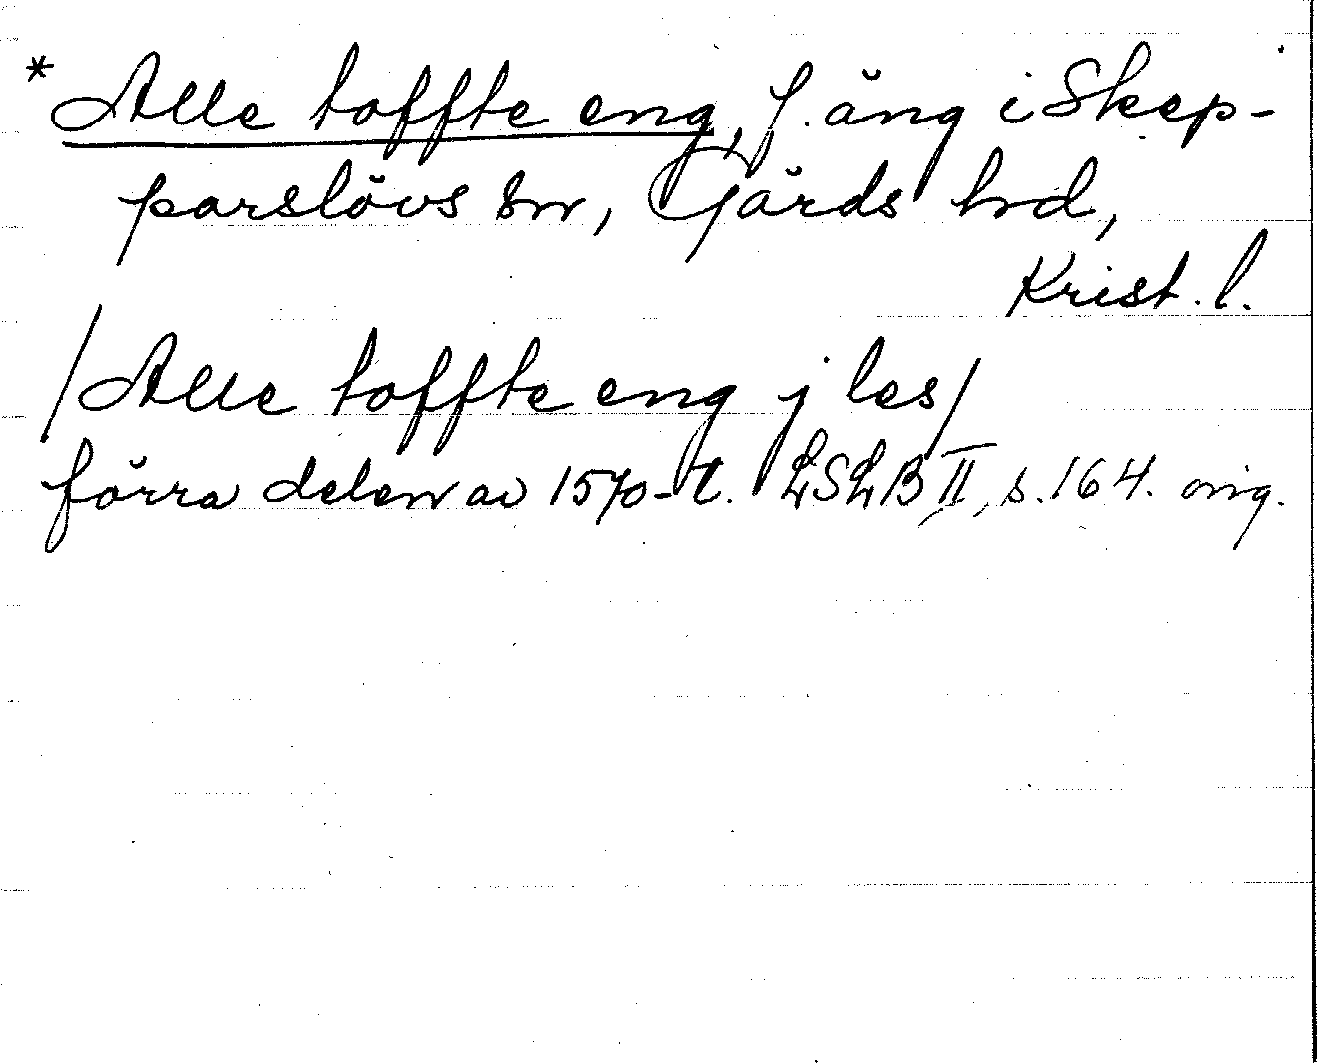 * Alle toffte eng, f. äng i Skep-
parslövs sn, Gärds hd,
Krist. l.
/Alle toffte eng j les/
förra delen av 1570-t. LSLB II, s. 164. orig.